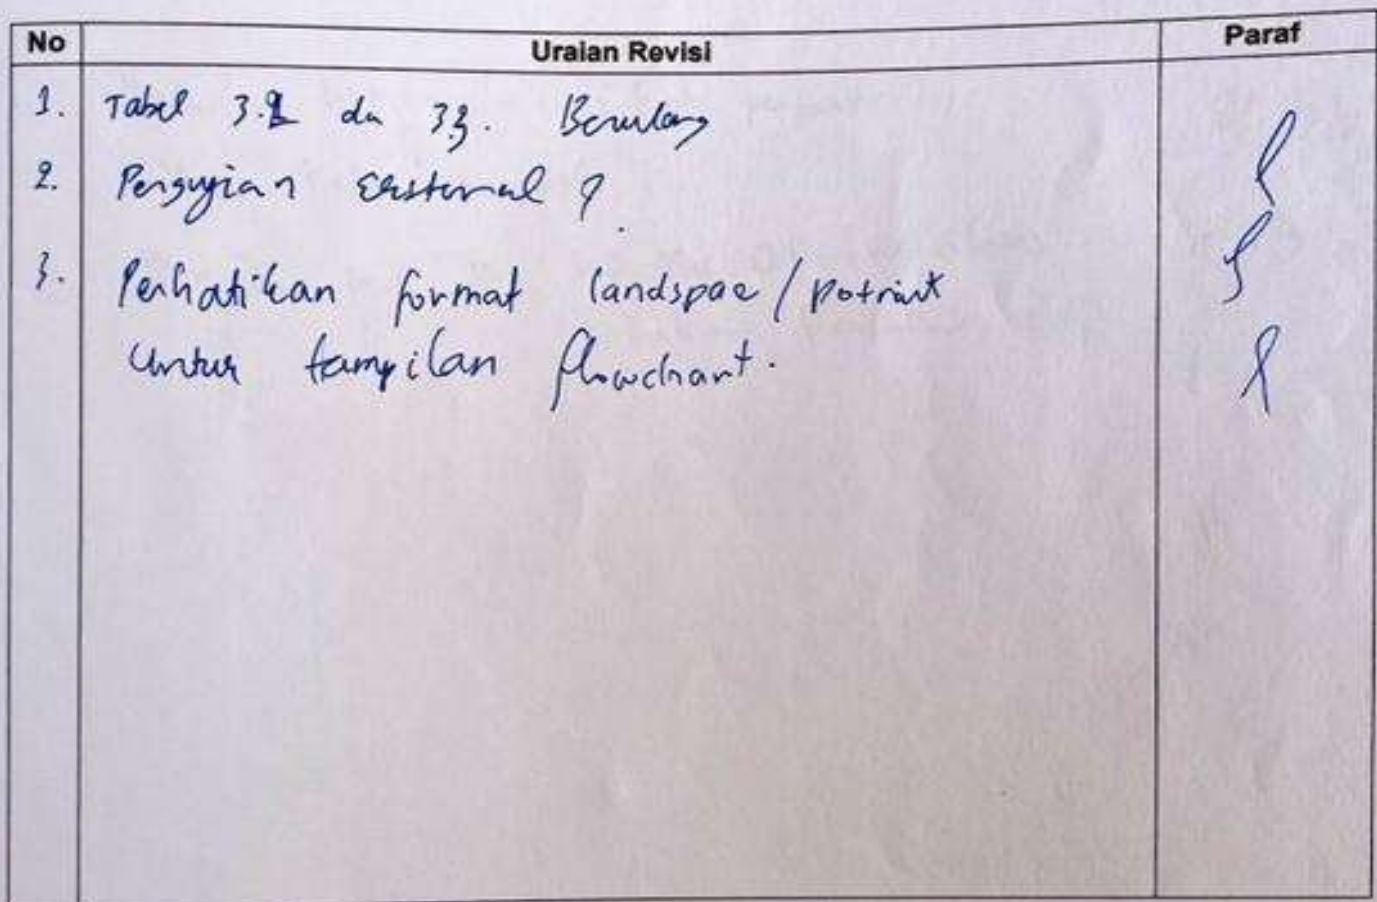 No Uraian Revisi Paraf
1. Tabel 3.2 da 33. Berulang
2. Pengujian eksternal ?
3. Perhatikan format landspae / potrait
untuk tampilan flowchart.